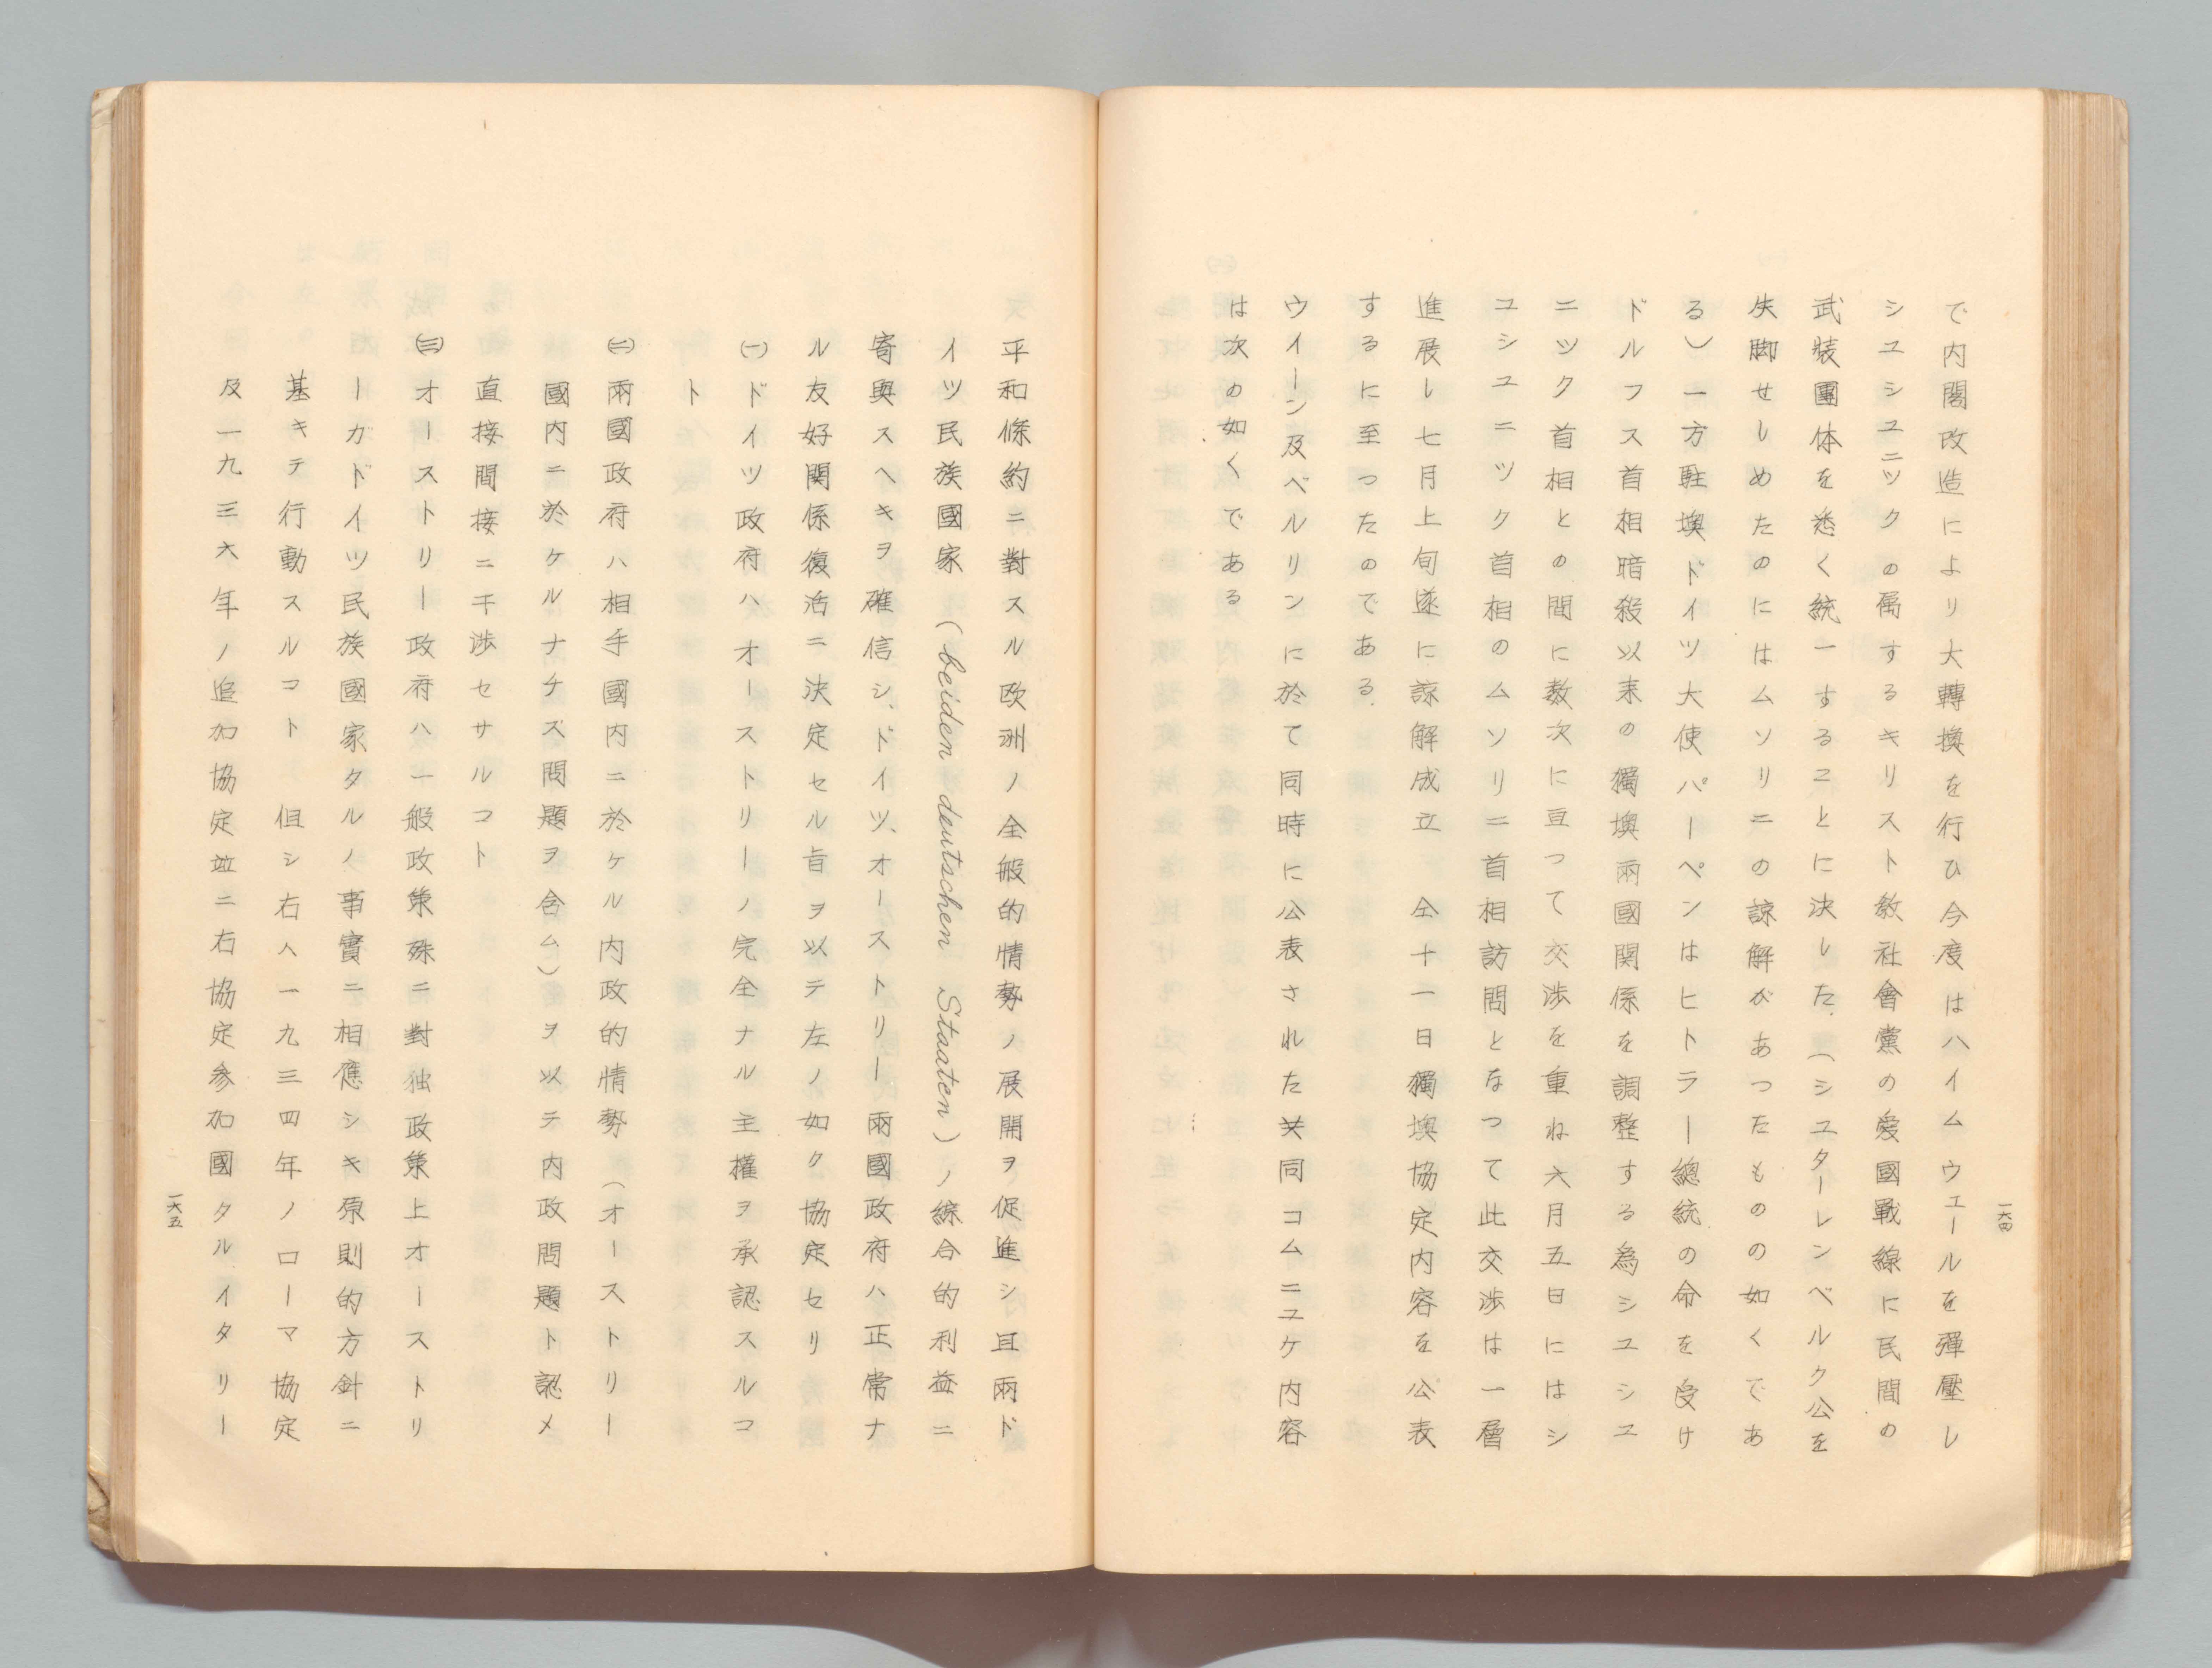 で内閣改造により大轉換を行ひ今度はハイムウエールを彈壓し
シユシユニツクの属するキリスト教社會黨の愛國戰線に民間の
武裝團体を悉く統一することに決した．（シユターレンベルク公を
失脚せしめたのにはムソリニの諒解があつたものの如くであ
る）一方駐墺ドイツ大使パーペンはヒトラー總統の命を受け
ドルフス首相暗殺以来の獨墺兩國関係を調整する為シユシユ
ニツク首相との間に数次に亘つて交渉を重ね六月五日にはシ
ユシユニツク首相のムソリニ首相訪問となつて此交渉は一層
進展し七月上旬遂に諒解成立　仝十一日獨墺協定内容を公表
するに至つたのである．
ウイーン及ベルリンに於て同時に公表された共同コムニユケ内容
は次の如くである
一六四
平和條約ニ對スル欧洲ノ全般的情勢ノ展開ヲ促進シ且兩ド
イツ民族國家（beiden deutschen Staaten）ノ綜合的利益ニ
寄與スヘキヲ確信シ、ドイツ、オーストリー兩國政府ハ正常ナ
ル友好関係復活ニ決定セル旨ヲ以テ左ノ如ク協定セリ
㈠ドイツ政府ハオーストリーノ完全ナル主權ヲ承認スルコ
ト
㈡兩國政府ハ相手國内ニ於ケル内政的情勢（オーストリー
國内ニ於ケルナチズ問題ヲ含ム）ヲ以テ内政問題ト認メ
直接間接ニ干渉セサルコト
㈢オーストリー政府ハ一般政策殊ニ對独政策上オーストリ
ーガドイツ民族國家タルノ事實ニ相應シキ原則的方針ニ
基キテ行動スルコト　但シ右ハ一九三四年ノローマ協定
及一九三六年ノ追加協定竝ニ右協定参加國タルイタリー
一六五